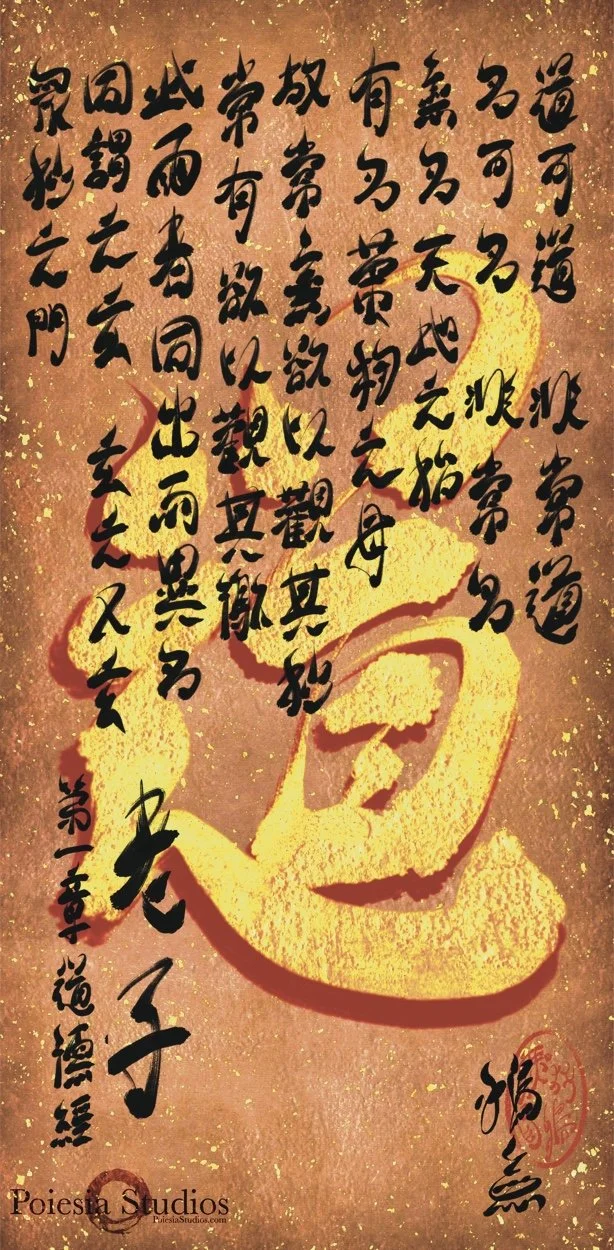 道可道 非常道
名可名 非常名
無名天地之始
有名萬物之母
故常無欲以觀其妙
常有欲以觀其徼
此兩者同出而異名
同謂之玄 玄之又玄
眾妙之門
老子
第一章道德經
道
無
Poiesia Studios
PoiesiaStudios.com